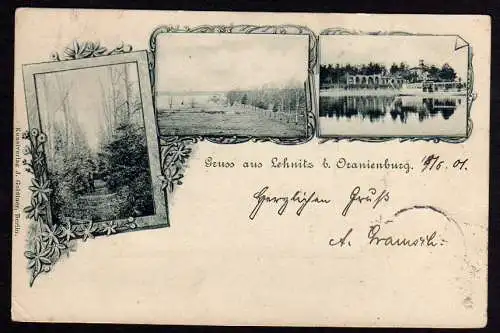 Gruss aus Lehnitz b. Oranienburg. 18/6. 01.
Herzlichen Gruß
A.
Kunstverlag J. Goldiner, Berlin.